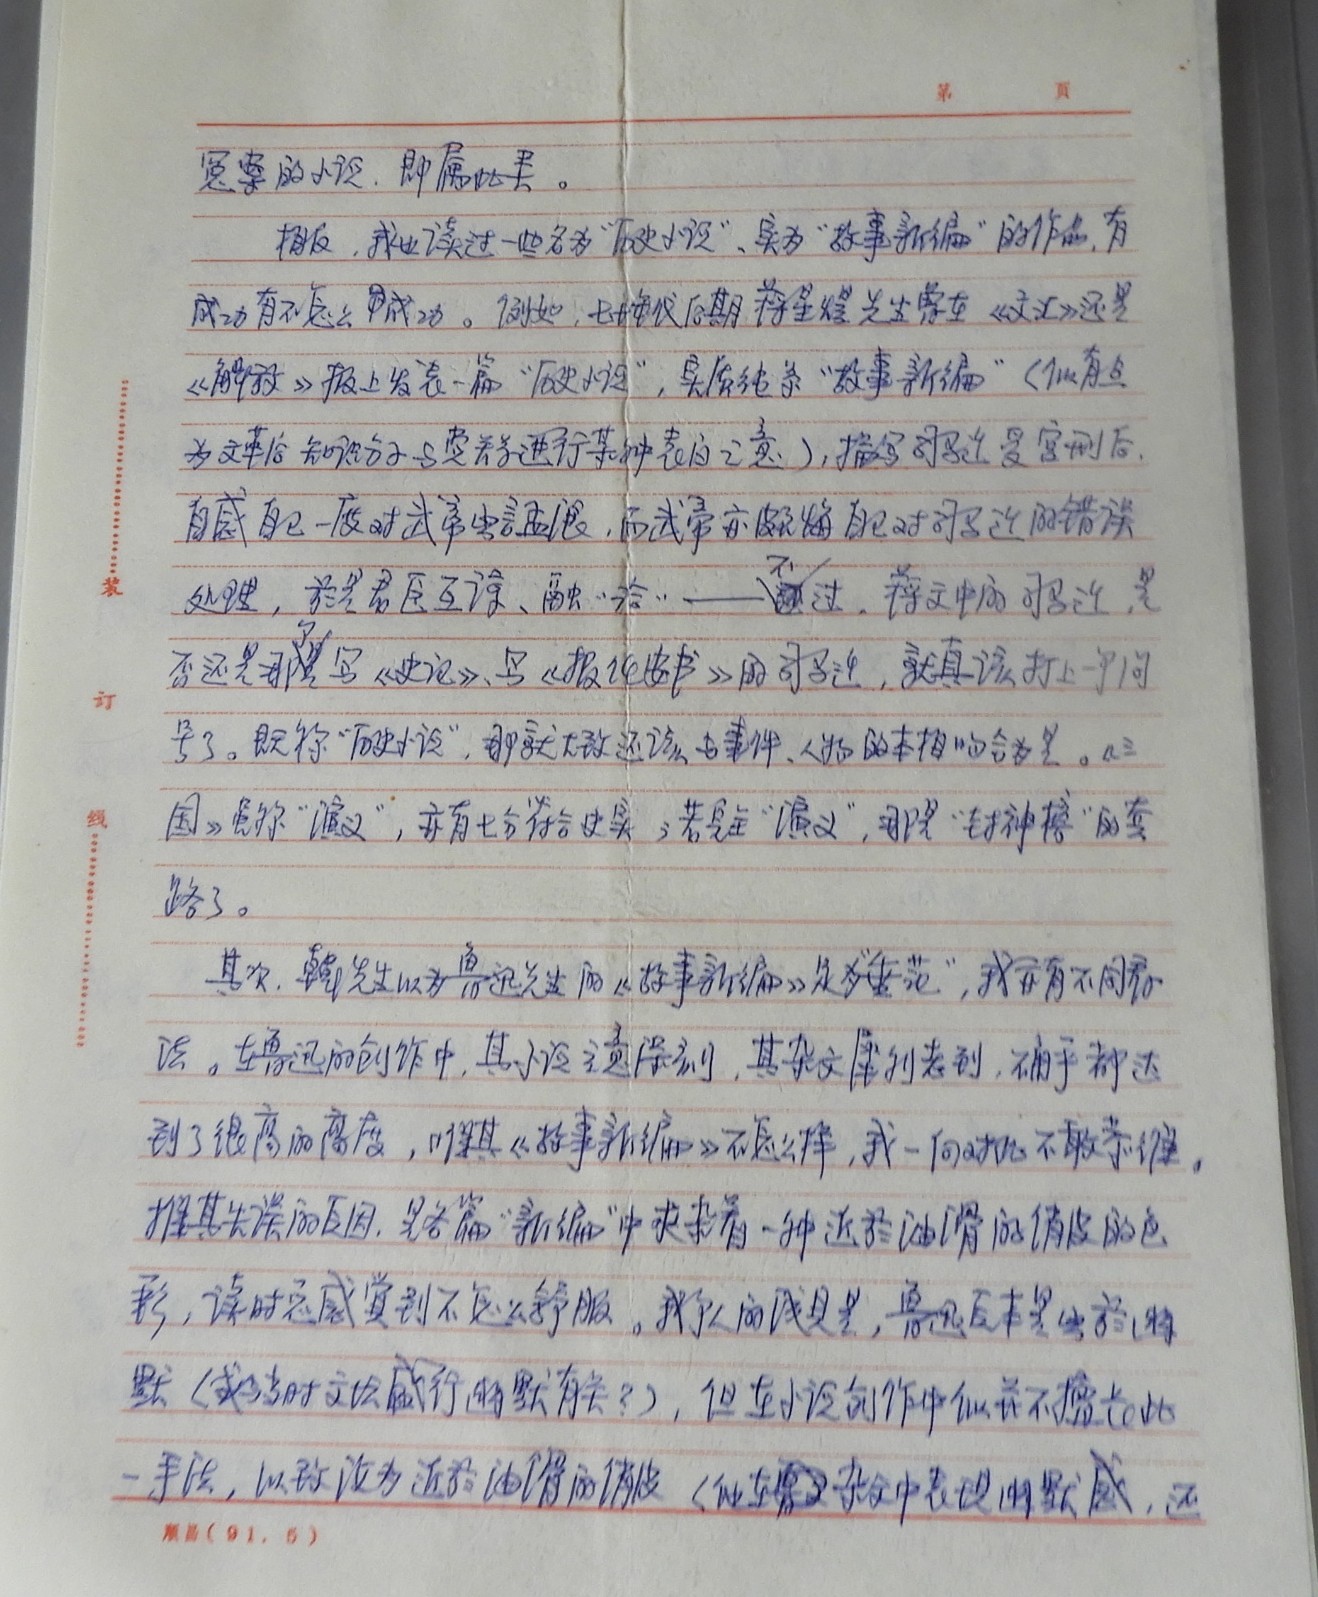 第 頁
冤案的小说，即属此类。
相反，我也读过一些名为“历史小说”、实为“故事新编”的作品，有
成功有不怎么成功。例如，七十年代后期蒋星煜先生曾在《文汇》还是
《解放》报上发表一篇“历史小说”，实质纯系“故事新编”（似有点
为文革后知识分子与党关系进行某种表白之意），描写司马迁受宫刑后，
自感自己一度对武帝出言孟浪，而武帝亦颇悔自己对司马迁的错误
处理，於是君臣互谅、融“洽”——不过，蒋文中的司马迁，是
否还是那个写《史记》、写《报任安书》的司马迁，就真该打上一个问
号了。既称“历史小说”，那就大致还该与事件、人物的本相吻合为是。《三
国》虽称“演义”，亦有七分符合史实；若是全“演义”，那是“封神榜”的套
路了。
其次，韩先生以为鲁迅先生的《故事新编》足为“垂范”，我亦有不同看
法。在鲁迅的创作中，其小说立意深刻，其杂文犀利老到，确乎都达
到了很高的高度，唯其《故事新编》不怎么样，我一向对此不敢恭维。
推其失误的原因，是各篇“新编”中夹杂着一种近於油滑的俏皮的色
彩，读时总感觉到不怎么舒服。我个人的浅见是，鲁迅原本是出於幽
默（或与当时文坛盛行幽默有关？），但在小说创作中似并不擅长此
一手法，以致流为近於油滑的俏皮（他在杂文中表现幽默感，还
装
订
线
顺昌(91.5)